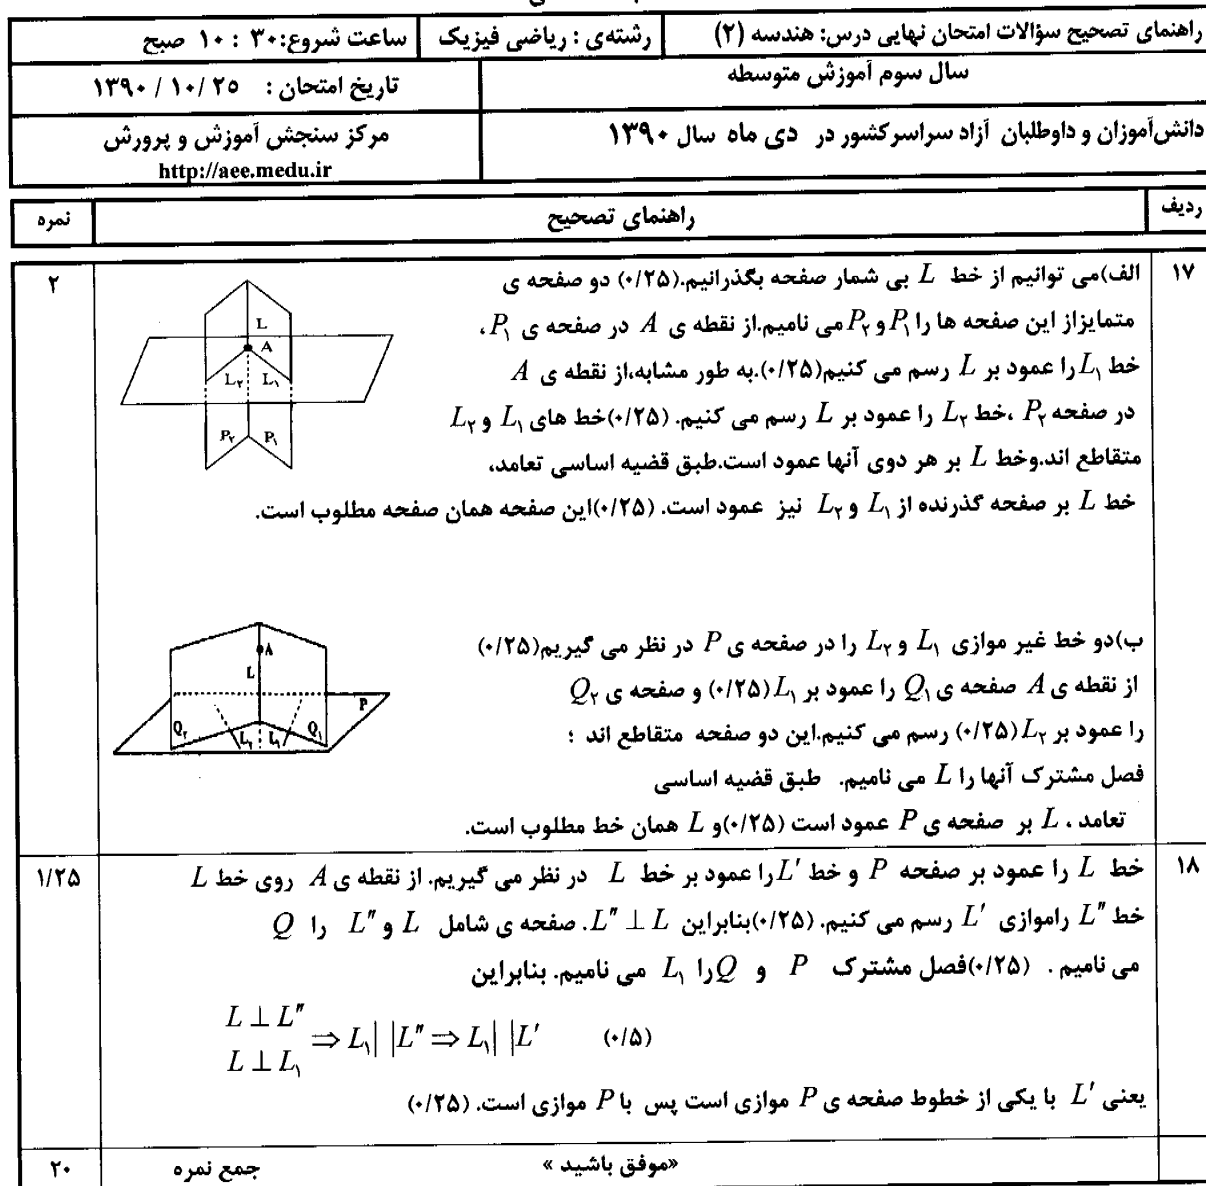 راهنمای تصحیح سؤالات امتحان نهایی درس: هندسه (۲)
رشته‌ی : ریاضی فیزیک
ساعت شروع: ۳۰ : ۱۰ صبح
سال سوم آموزش متوسطه
تاریخ امتحان : ۲۵ /۱۰ / ۱۳۹۰
دانش‌آموزان و داوطلبان آزاد سراسرکشور در دی ماه سال ۱۳۹۰
مرکز سنجش آموزش و پرورش
http://aee.medu.ir
ردیف
راهنمای تصحیح
نمره
۱۷
الف)می توانیم از خط L بی شمار صفحه بگذرانیم.(۰/۲۵) دو صفحه ی
متمایزاز این صفحه ها را P₁ و P₂ می نامیم.از نقطه ی A در صفحه ی P₁ ،
خط L₁ را عمود بر L رسم می کنیم(۰/۲۵).به طور مشابه،از نقطه ی A
در صفحه P₂ ،خط L₂ را عمود بر L رسم می کنیم. (۰/۲۵)خط های L₁ و L₂
متقاطع اند.وخط L بر هر دوی آنها عمود است.طبق قضیه اساسی تعامد،
خط L بر صفحه گذرنده از L₁ و L₂ نیز عمود است. (۰/۲۵)این صفحه همان صفحه مطلوب است.
۲
L
A
L₂ L₁
P₂ P₁
ب)دو خط غیر موازی L₁ و L₂ را در صفحه ی P در نظر می گیریم(۰/۲۵)
از نقطه ی A صفحه ی Q₁ را عمود بر L₁ (۰/۲۵) و صفحه ی Q₂
را عمود بر L₂ (۰/۲۵) رسم می کنیم.این دو صفحه متقاطع اند ؛
فصل مشترک آنها را L می نامیم. طبق قضیه اساسی
تعامد ، L بر صفحه ی P عمود است (۰/۲۵)و L همان خط مطلوب است.
A
L
P
Q₂ L₂ L₁ Q₁
۱۸
خط L را عمود بر صفحه P و خط L′ را عمود بر خط L در نظر می گیریم. از نقطه ی A روی خط L
خط L″ راموازی L′ رسم می کنیم. (۰/۲۵)بنابراین L″ ⊥ L. صفحه ی شامل L و L″ را Q
می نامیم . (۰/۲۵)فصل مشترک P و Q را L₁ می نامیم. بنابراین
L ⊥ L″
L ⊥ L₁
⇒ L₁ | | L″ ⇒ L₁ | | L′ (۰/۵)
یعنی L′ با یکی از خطوط صفحه ی P موازی است پس با P موازی است. (۰/۲۵)
۱/۲۵
«موفق باشید »
جمع نمره
۲۰